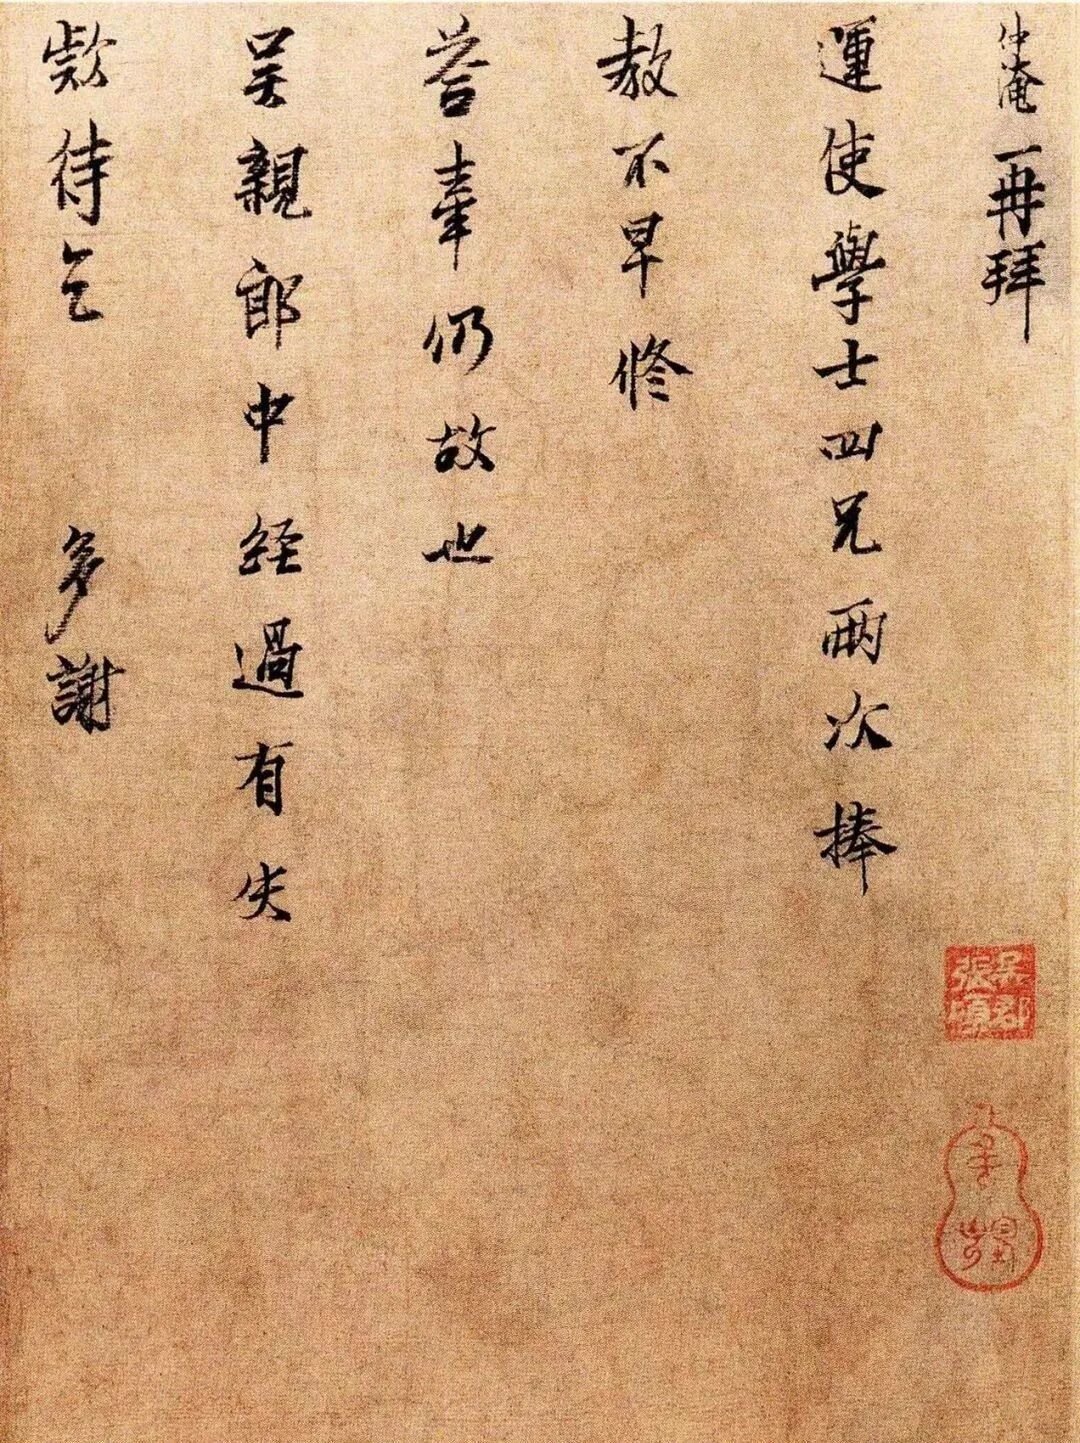 仲淹再拜
運使學士四兄兩次捧
教不早修
荅牽仍故也
吴親郎中經過有失
款待乞 多謝
吳郡